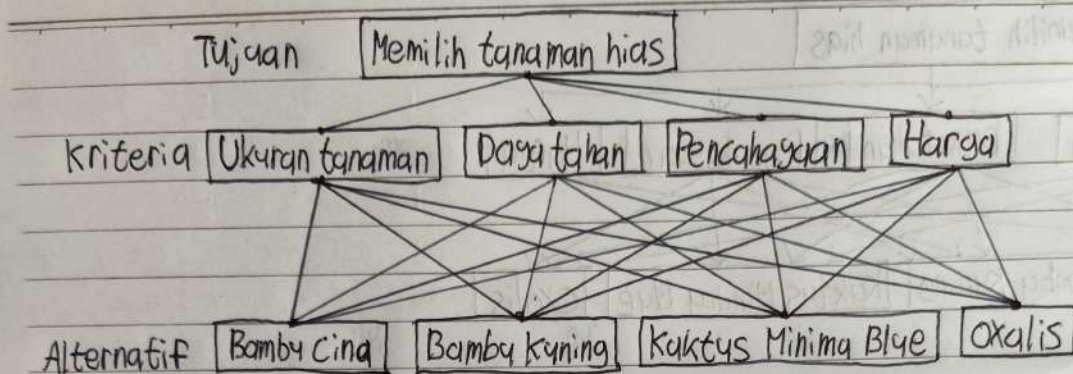 Tujuan Memilih tanaman hias
Kriteria Ukuran tanaman Daya tahan Pencahayaan Harga
Alternatif Bambu Cina Bambu Kuning Kaktus Minima Blue Oxalis